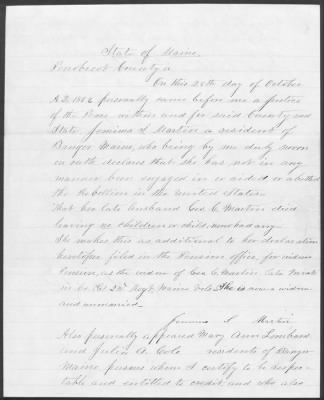 State of Maine
Penobscot County ss
On this 28th day of October
A.D. 1866 personally came before me a Justice
of the Peace within and for said County and
State, Jemima S Martin a resident of
Bangor Maine, who being by me duly sworn
on oath declares that she has not in any
manner been engaged in or aided or abetted
the Rebellion in the United States
That her late husband Geo. C. Martin died
leaving no children or child, never had any
She makes this as additional to her declaration
heretofore filed in the Pension office for widows
Pension, as the widow of Geo C. Martin late Private
in Co. 2d Regt. Maine Vols. She is now a widow
and unmarried.
Jemima S Martin
Also personally appeared Mary Ann Lombard
and Julia A. Cole residents of Bangor
Maine persons whom I certify to be respec-
table and entitled to credit, and who also